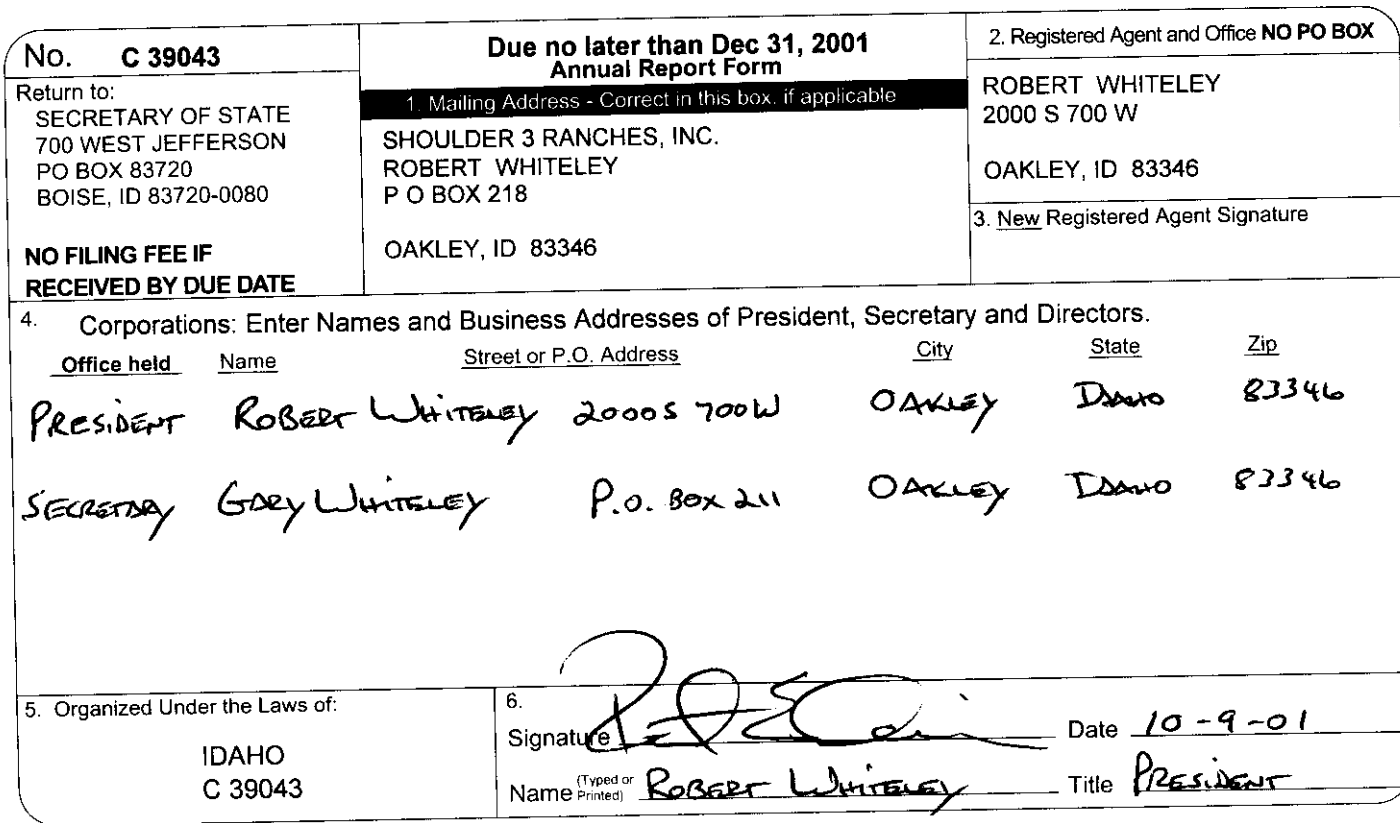 No. C 39043
Return to:
SECRETARY OF STATE
700 WEST JEFFERSON
PO BOX 83720
BOISE, ID 83720-0080
NO FILING FEE IF
RECEIVED BY DUE DATE
Due no later than Dec 31, 2001
Annual Report Form
1. Mailing Address - Correct in this box. if applicable
SHOULDER 3 RANCHES, INC.
ROBERT WHITELEY
P O BOX 218
OAKLEY, ID 83346
2. Registered Agent and Office NO PO BOX
ROBERT WHITELEY
2000 S 700 W
OAKLEY, ID 83346
3. New Registered Agent Signature
4. Corporations: Enter Names and Business Addresses of President, Secretary and Directors.
Office held Name Street or P.O. Address City State Zip
PRESIDENT ROBERT WHITELEY 2000 S 700 W OAKLEY IDAHO 83346
SECRETARY GARY WHITELEY P.O. BOX 211 OAKLEY IDAHO 83346
5. Organized Under the Laws of:
IDAHO
C 39043
6.
Signature Date 10-9-01
Name (Typed or Printed) ROBERT WHITELEY Title PRESIDENT